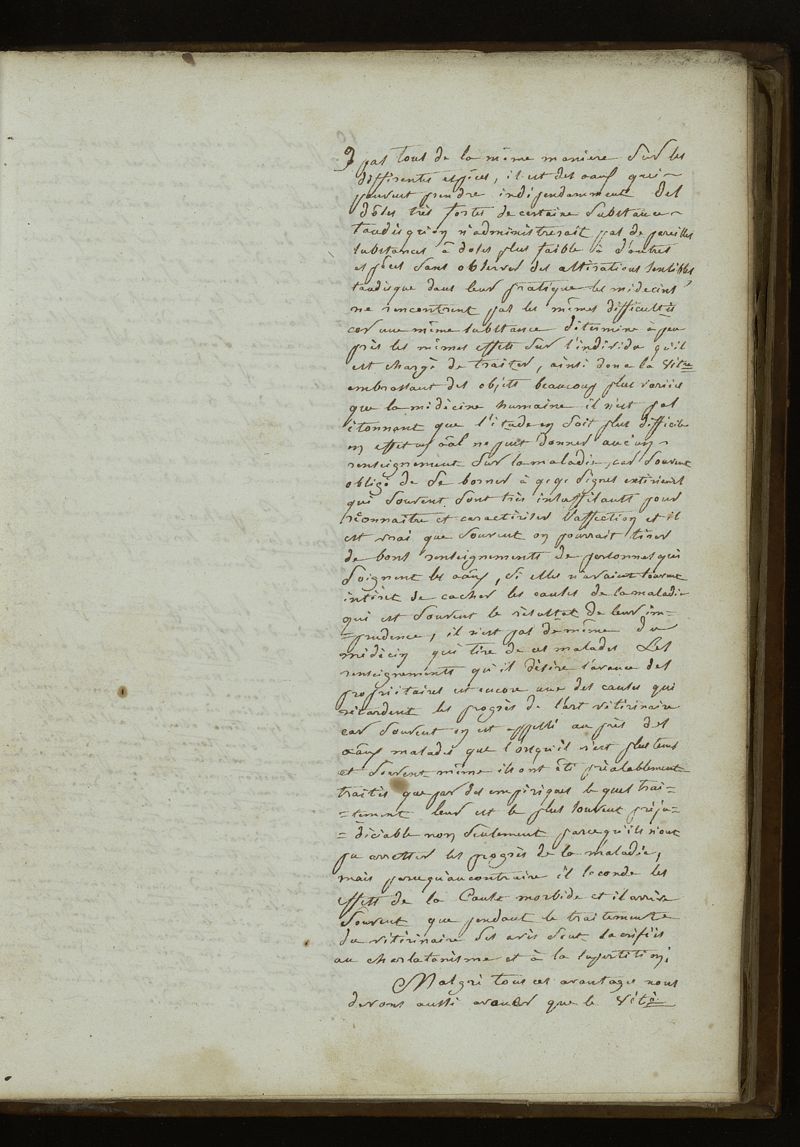 9 pas tous de la même maniere Sur les
differentes espèces, il est des aaux qui
peuvent prendre indépendamment des
dôses très fortes de certaine Substance
tandisqu'on n'administrerait pas de pareilles
substances à doses plus faible à d'autres
espèces Sans observer des altérations sensibles
tandisque dans leur pratique les médecins
ne rencontrent pas les mêmes difficultés
car une même substance détermine à peu
près les mêmes effets sur l'individu qu'il
est chargé de traiter, ainsi donc la vétre
embrassant des objets beaucoup plus variés
que la médecine humaine il n'est pas
étonnant que l'étude en Soit plus difficile
en effet un aal ne peut donner aucun
renseignement Sur la maladie, car Souvent
obligé de Se borner à qcqs Signes extérieurs
qui Souvent Sont très insuffisants pour
réconnaître et caractériser l'affection et il
est vrai que Souvent on pourrait tirer
de bons renseignements de personnes qui
Soignent les aaux, Si elles n'avaient souvent
intérêt de cacher les causes de la maladie
qui est Souvent le résultat de leur im=
=prudence, il n'est pas de même du
médecin qui tire de ces malades Les
renseignements qu'il désire l'avance des
propriétaires est encore une des causes qui
retardent les progrès de l'art vétérinaire
car Souvent on est appellé au près des
aaux malades que lorsqu'il n'est plus tems
et Souvent même ils ont été préalablement
traités que par des empiriques le quel trai=
=tement leur est le plus souvent préju=
=diciable non Seulement parcequ'ils n'ont
pu arretter les progrès de la maladie,
mais parcequ'au contraire il seconde les
effets de la Cause morbide et il arrive
Souvent que pendant le traitement
du vétérinaire Ses avis Sont sacrifiés
au charlatanisme et à la Supertition;
Malgré tous ces avantages nous
devons aussi avouer que le vétre